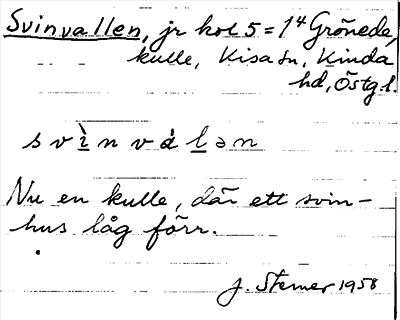 Svinvallen, jr kol 5 = 1⁴ Gröneda,
kulle, Kisa sn, Kinda
hd, Östgl.
svìnválən
Nu en kulle, där ett svin-
hus låg förr.
J. Sterner 1958